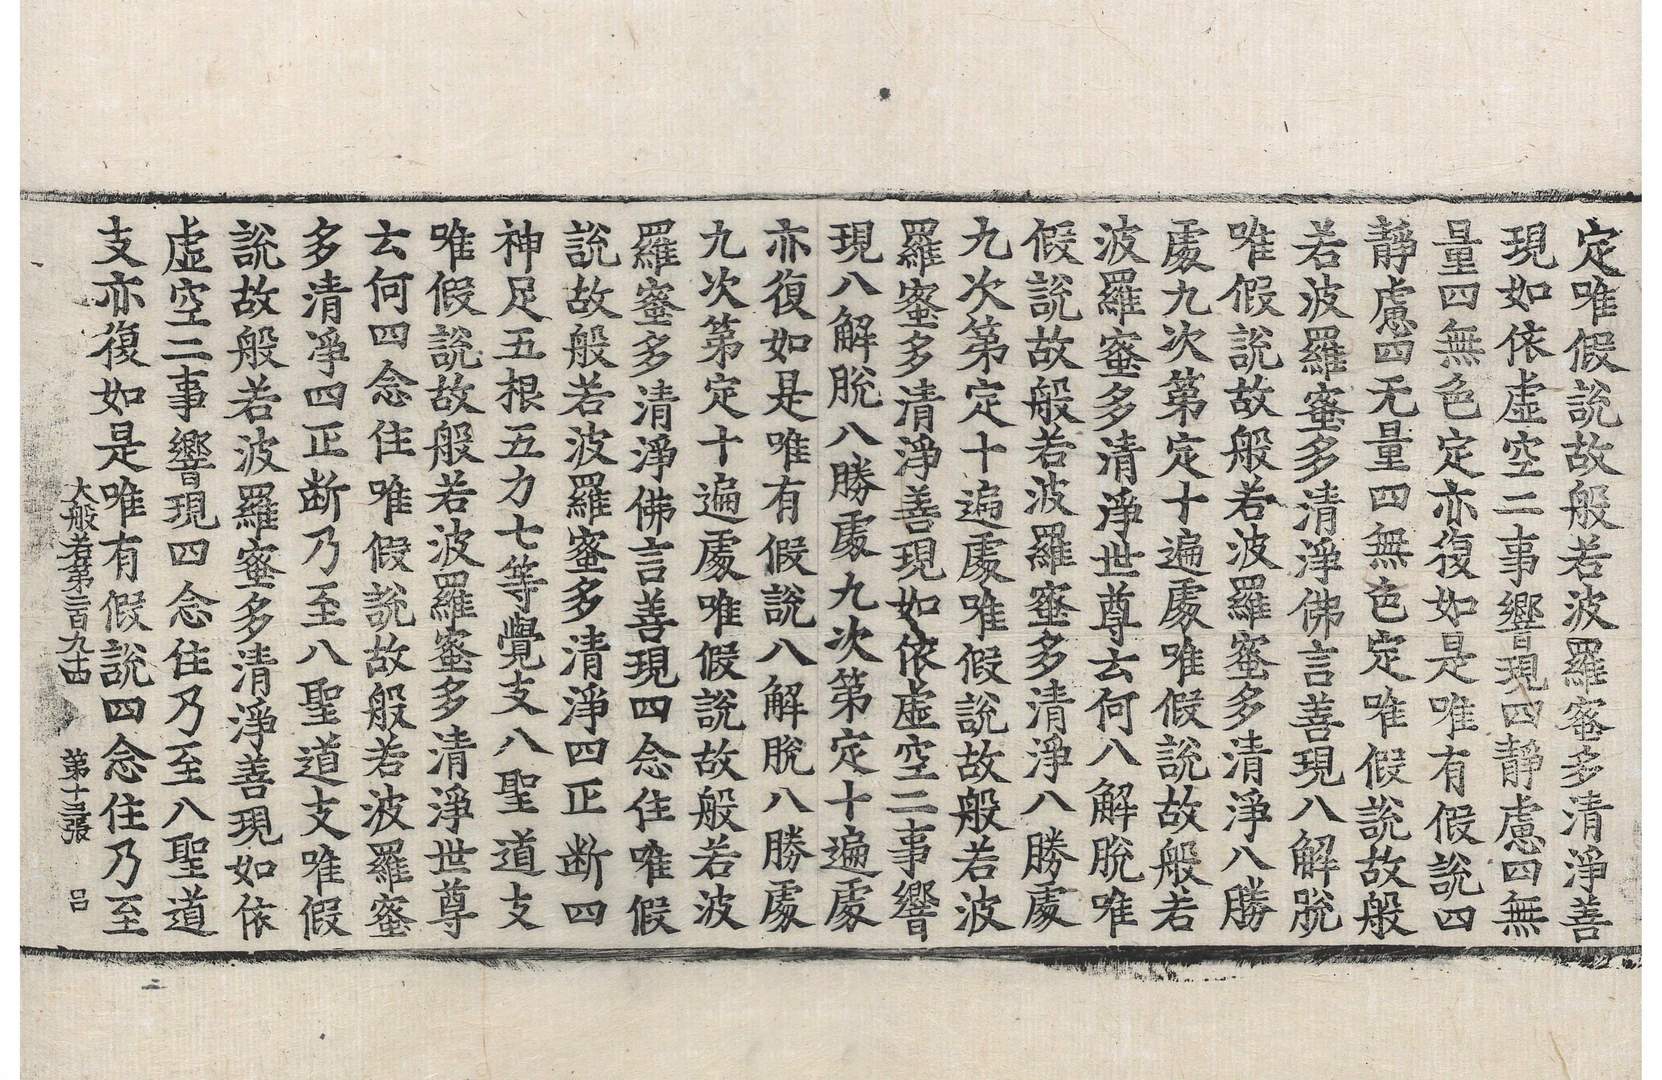 定唯假說故般若波羅蜜多清淨善
現如依虛空二事響現四靜慮四無
量四無色定亦復如是唯有假說四
靜慮四无量四無色定唯假說故般
若波羅蜜多清淨佛言善現八解脫
唯假說故般若波羅蜜多清淨八勝
處九次第定十遍處唯假說故般若
波羅蜜多清淨世尊云何八解脫唯
假說故般若波羅蜜多清淨八勝處
九次第定十遍處唯假說故般若波
羅蜜多清淨善現如依虛空二事響
現八解脫八勝處九次第定十遍處
亦復如是唯有假說八解脫八勝處
九次第定十遍處唯假說故般若波
羅蜜多清淨佛言善現四念住唯假
說故般若波羅蜜多清淨四正断四
神足五根五力七等覺支八聖道支
唯假說故般若波羅蜜多清淨世尊
云何四念住唯假說故般若波羅蜜
多清淨四正断乃至八聖道支唯假
說故般若波羅蜜多清淨善現如依
虛空二事響現四念住乃至八聖道
支亦復如是唯有假說四念住乃至
大般若第二百九十四 第十三張 吕